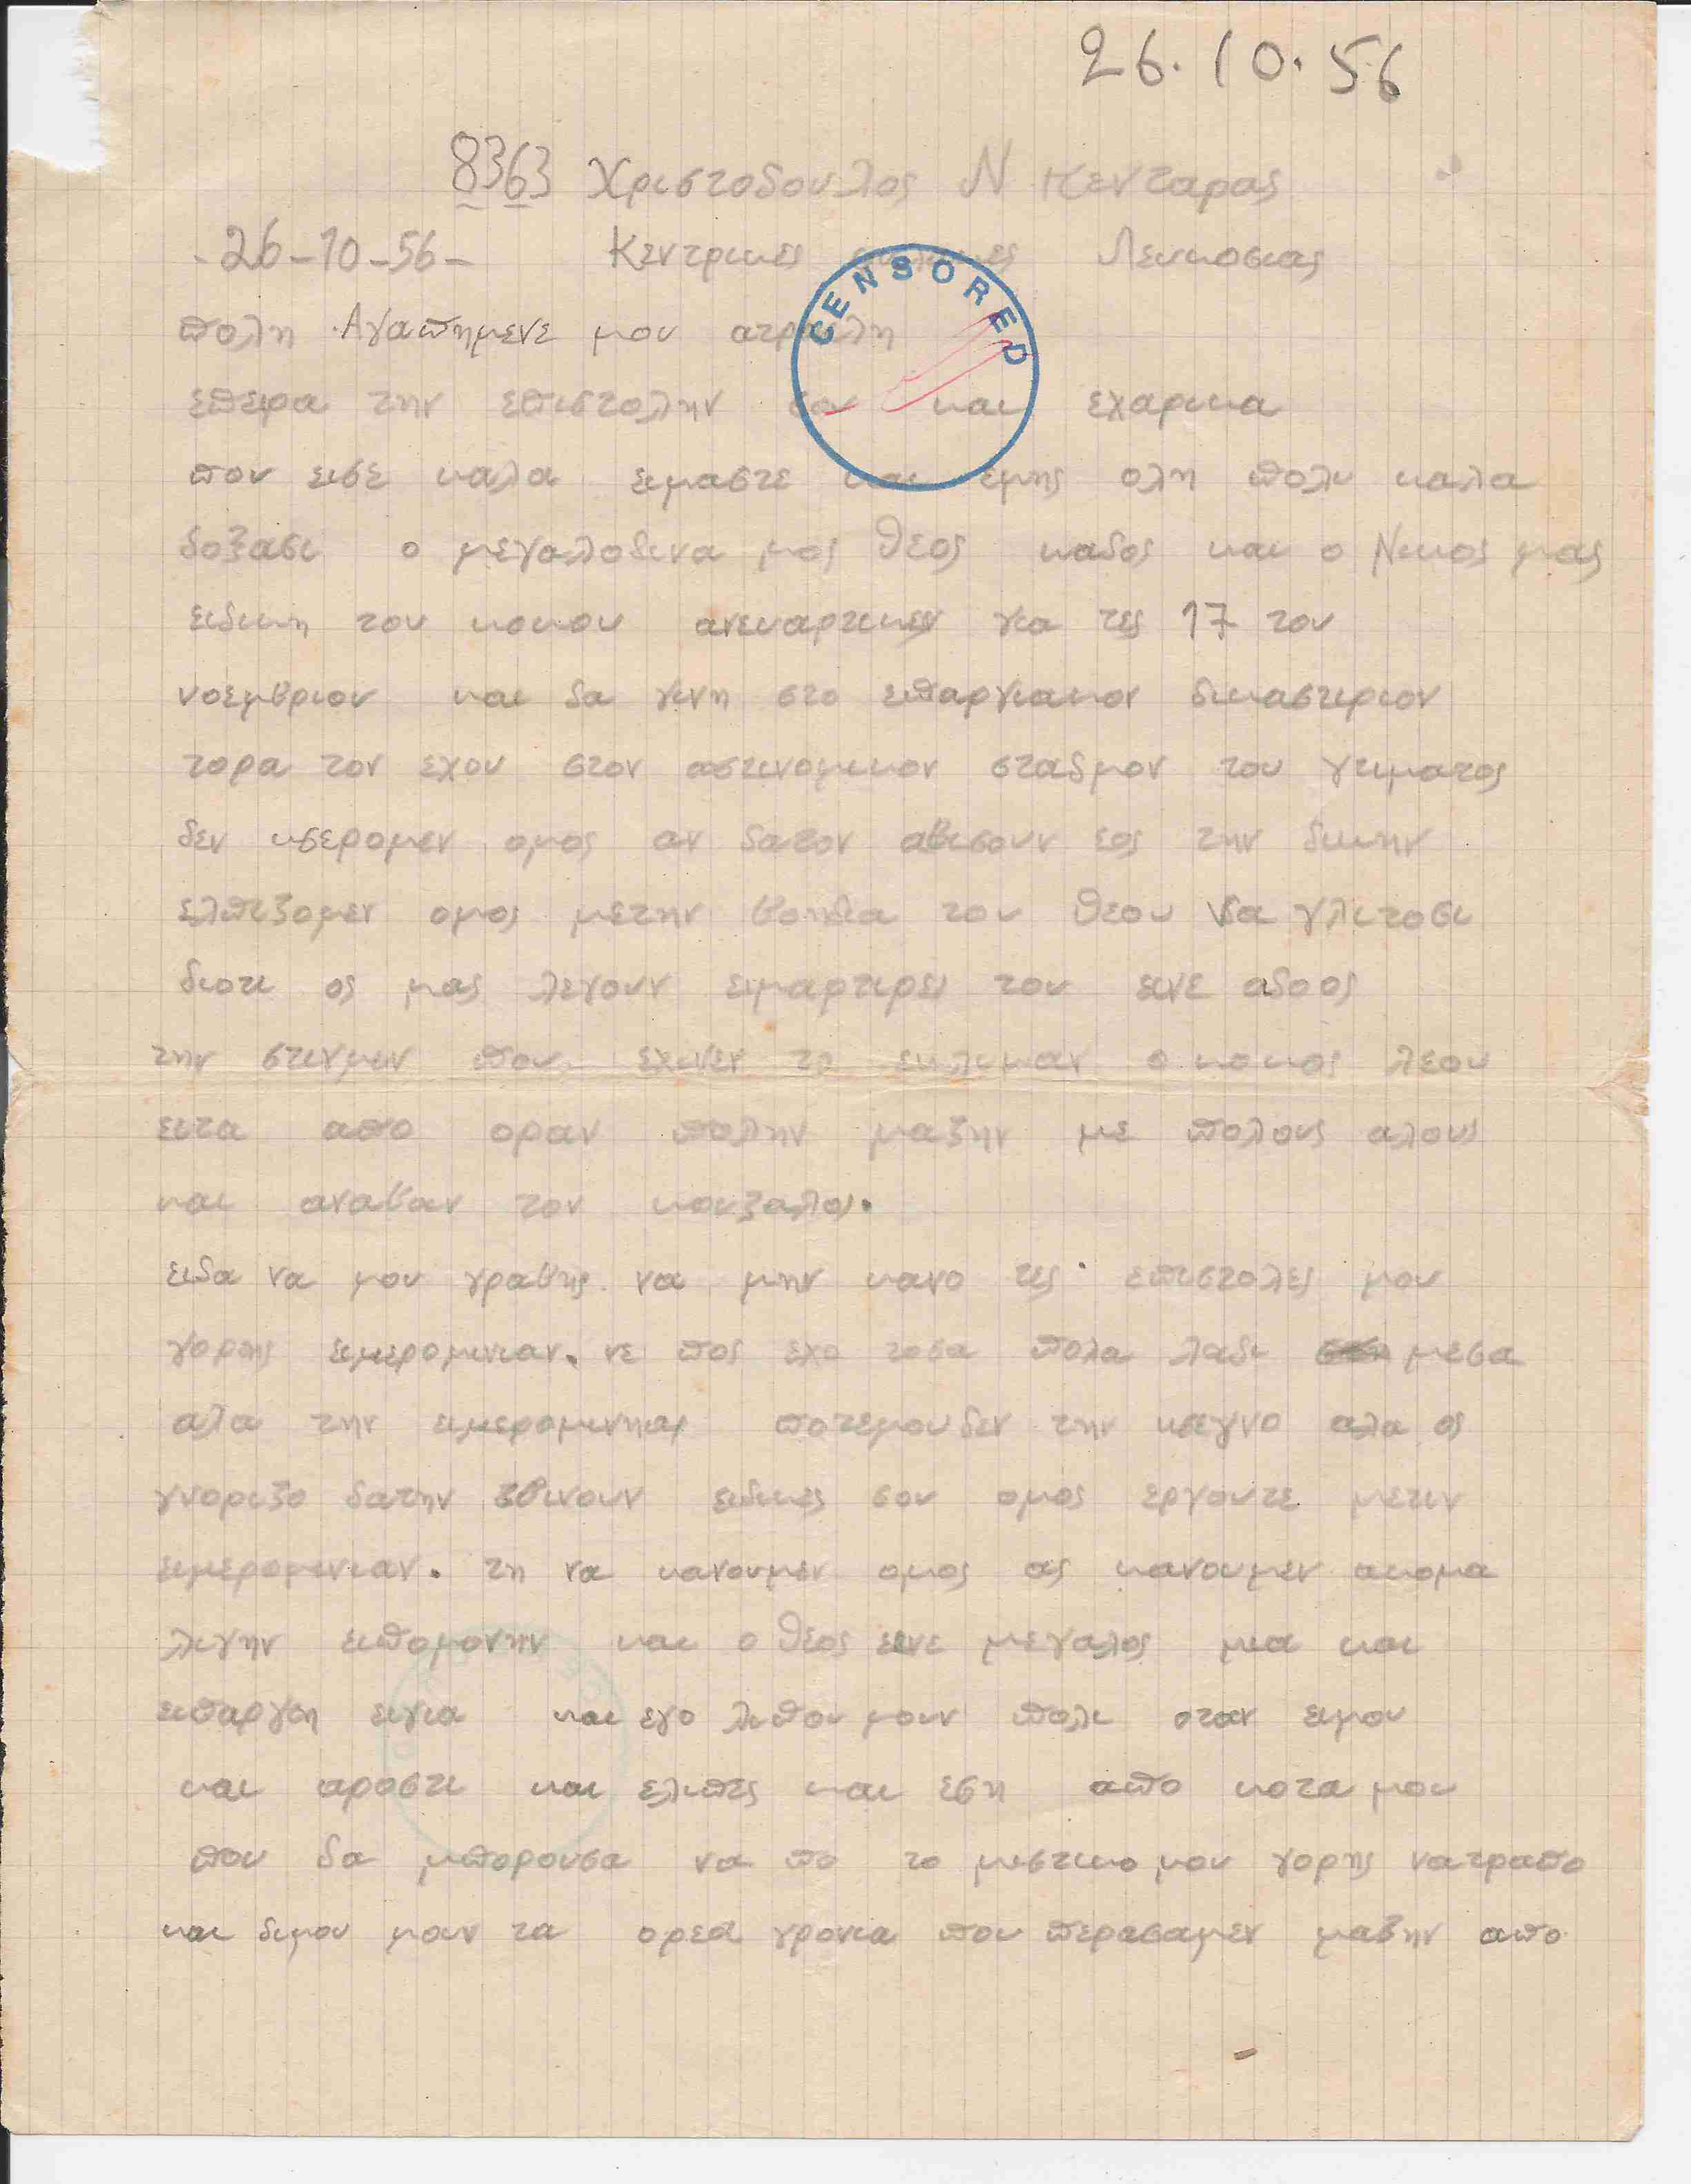 26.10.56
8363 Χριστοδουλος Ν Κενταρας
-26-10-56- Κεντρικες Λευκοσιας
CENSORED
πολη Αγαπημενε μου
επειρα την επιστολην σου και εχαρικα
που εισε καλα ειμαστε και εμης ολη πολυ καλα
δοξασι ο μεγαλοδινα μος θεος καδος και ο Νικος μας
ειδικη του κοκου ανεκαρτικεν για τες 17 του
νοεμβριου και δα γινη στο επαργιακον δικαστιριον
τορα τον εχου στον αστινομικον σταδμον του γτιματος
δεν κσερομεν ομος αν δατον αβισουν εος την δικην
ελπιζομεν ομος μετην βοηδια του θεου δα γλιτοσι
διοτι ος μας λεγουν ειμαρτιρει του εινε αδοος
την στινμιν που εχινεν το ο κοκος λεου
ειτα απο οραν πολην μαζην με πολους αλους
και αναβαν τον
ειδα να μου γραβης να μην κανο τες επιστολες μου
γορης ειμερομινιαν. νε πος εχο τοσα πολα λαδι μεσα
αλα την ειμερομινηαν ποτεμου δεν την κσεγνο αλα ος
γνοριζο δατην σβινουν ειδικες σου ομος εργουντε μετιν
ειμερομινιαν. τη να κανουμεν ομος ας κανουμεν ακομα
λιγην ειπομονην και ο θεος εινε μεγαλος μια και
ειπαργη ειγια και εγο λυπου μουν πολι οταν ειμου
και αροστι και ελιπες και εση απο κοτα μου
που δα μπορουσα να πο το μιστικο μου γορης νατραπο
και διμου μουν τα ορεα γρονια που περασαμεν μαζην απο